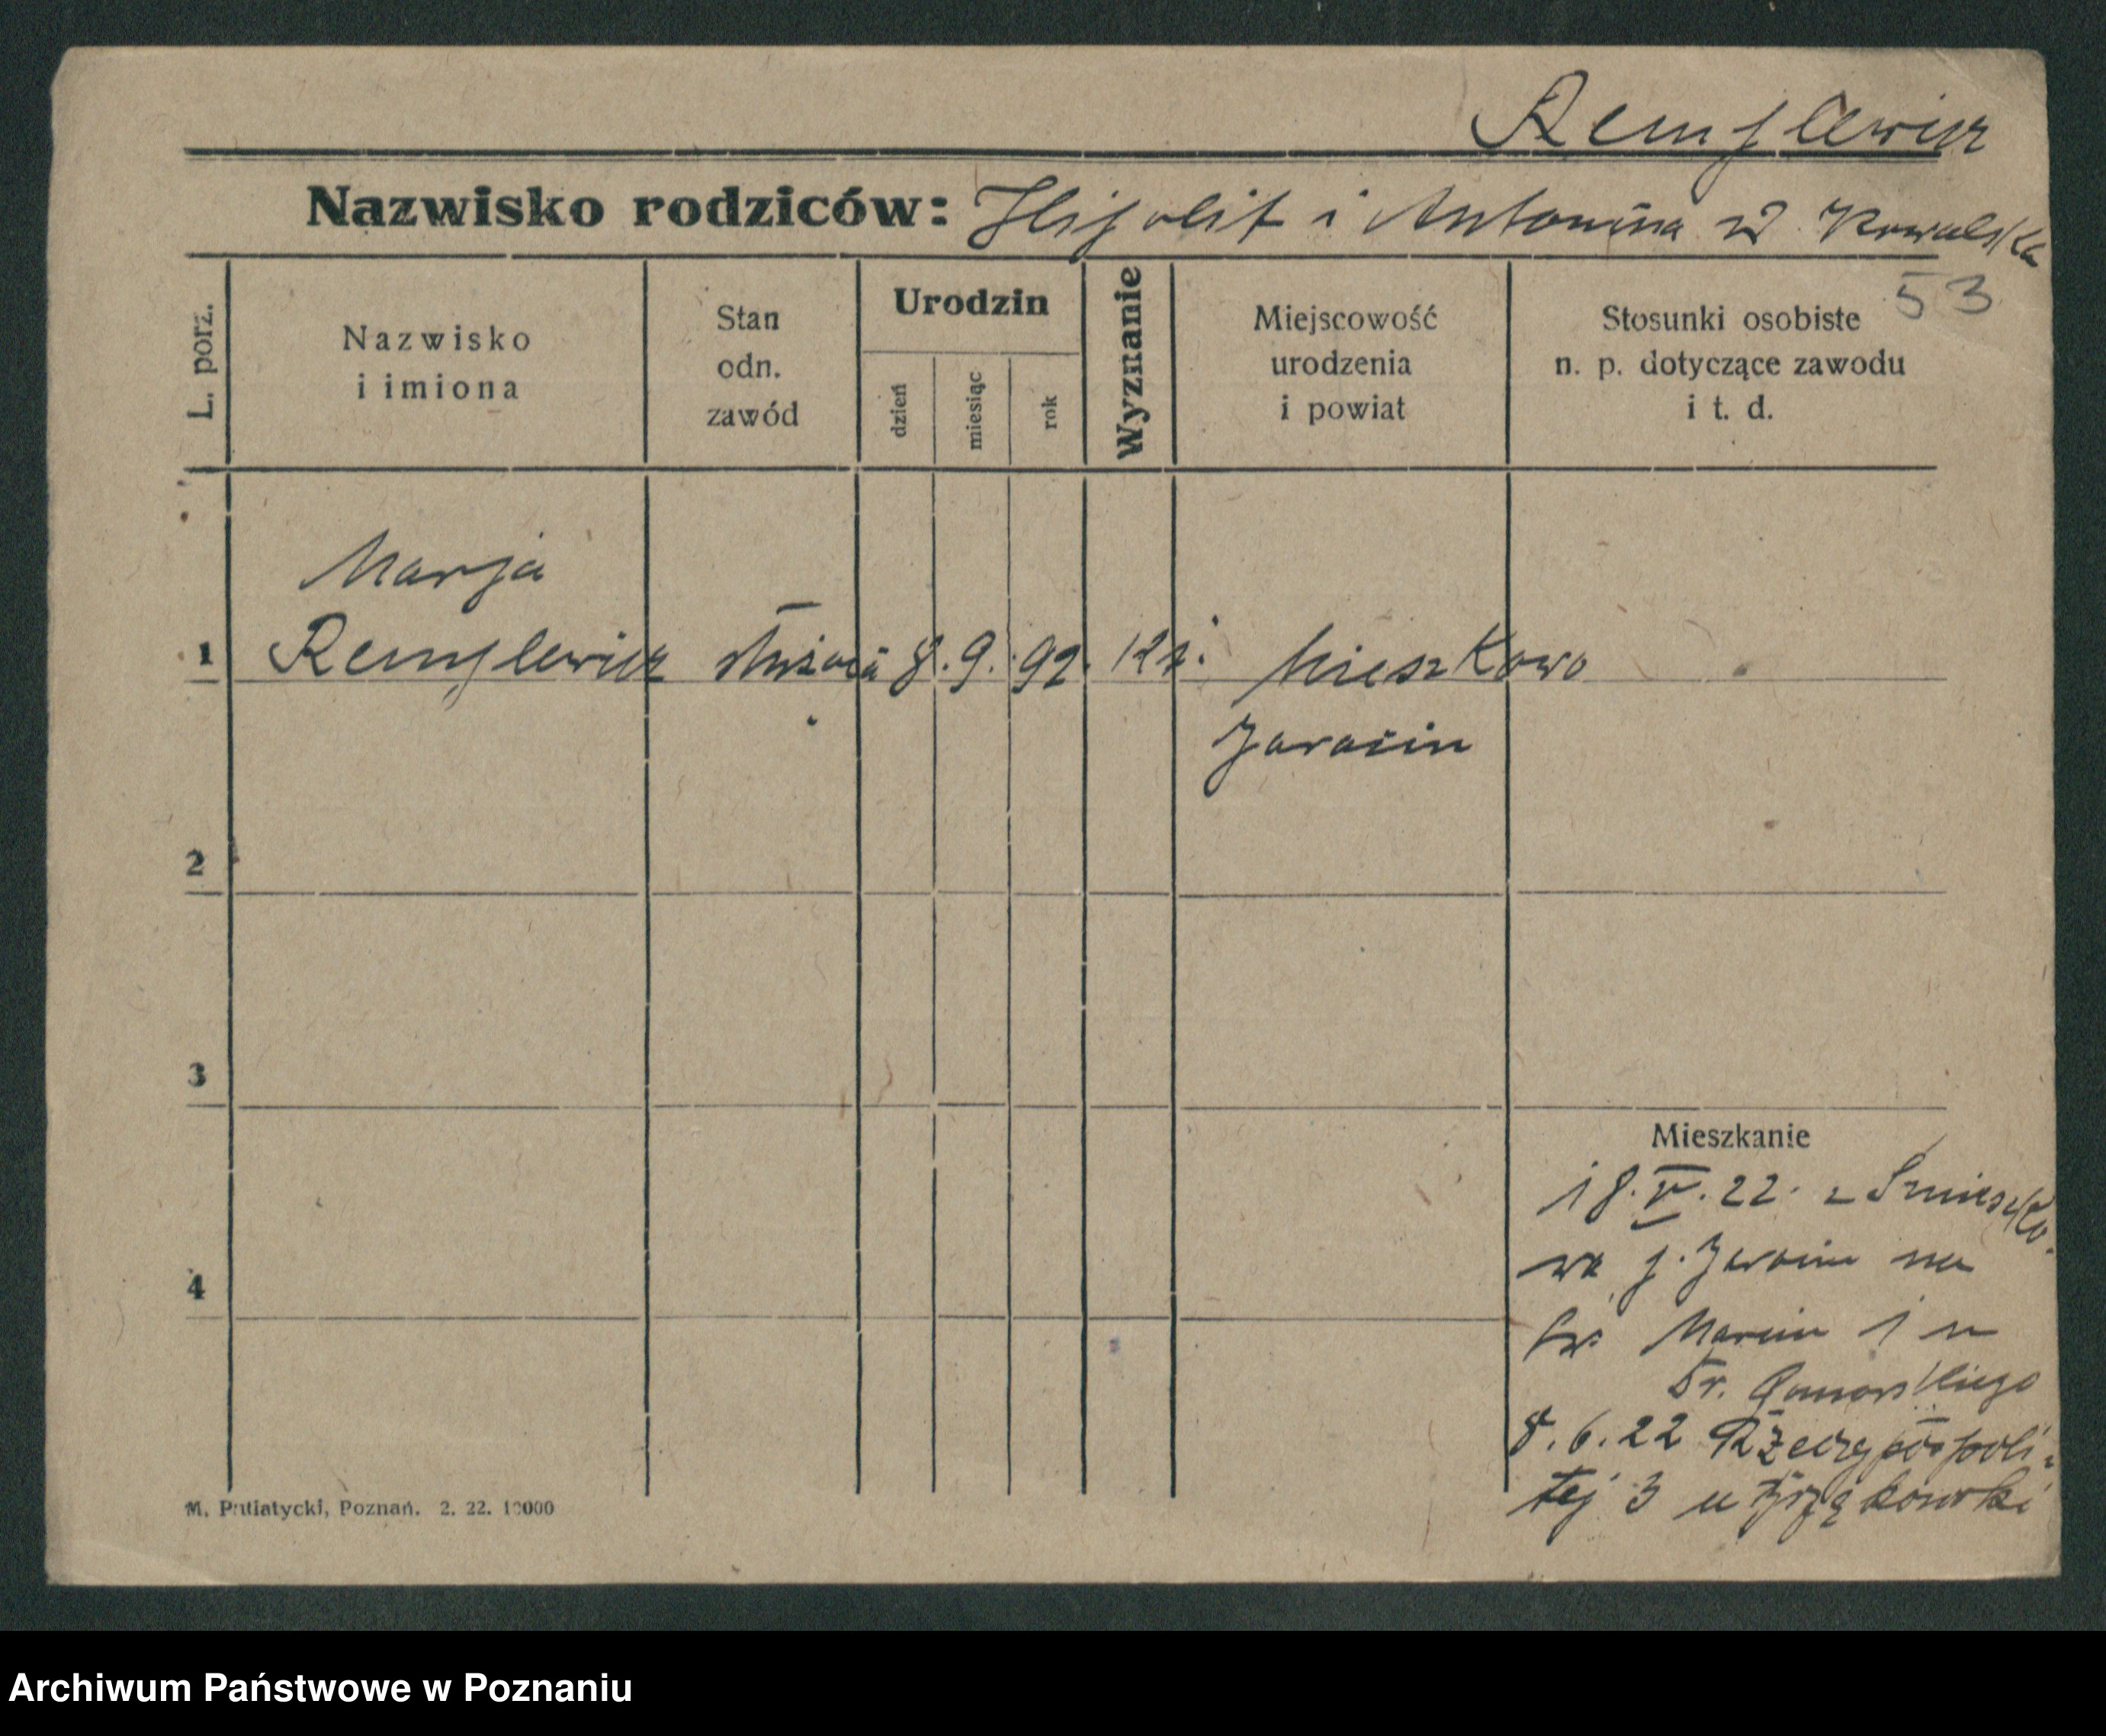 Remplewicz
Nazwisko rodziców: Hipolit i Antonina z d. Kowalska
53
L. porz.
Nazwisko
i imiona
Stan
odn.
zawód
Urodzin
dzień
miesiąc
rok
Wyznanie
Miejscowość
urodzenia
i powiat
Stosunki osobiste
n. p. dotyczące zawodu
i t. d.
Marja
1 Remplewicz służąca 8. 9. 92. kt. Mieszkowo
Jarocin
2
3
4
Mieszkanie
18.V.22. z Mieszko-
wa p. Jarocin na
św. Marcin 1 u
Dr.
8.6.22 Rzeczypospoli-
tej 3 u
M. Putiatycki, Poznań. 2. 22. 10000
Archiwum Państwowe w Poznaniu